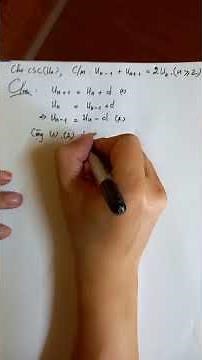 Cho CSC(Un), C/m: Un-1 + Un+1 = 2Un. (n ≥ 2)
C/m
Un+1 = Un + d (1)
Un = Un-1 + d
⇒ Un-1 = Un - d (2)
Cộng (1), (2)